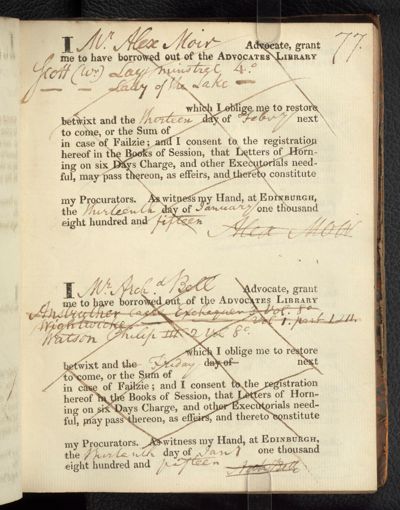 77.
I Mr. Alex Moir Advocate, grant
me to have borrowed out of the ADVOCATES LIBRARY
Scott (Wr) Lay minstrel 4o
— Lady of the Lake —
which I oblige me to restore
betwixt and the thirteen day of Febry next
to come, or the Sum of
in case of Failzie; and I consent to the registration
hereof in the Books of Session, that Letters of Horn-
ing on six Days Charge, and other Executorials need-
ful, may pass thereon, as effeirs, and thereto constitute
my Procurators. As witness my Hand, at EDINBURGH,
the thirteenth day of January one thousand
eight hundred and fifteen
Alex Moir
I Mr Archd Bell Advocate, grant
me to have borrowed out of the ADVOCATES LIBRARY
Anstruther Cases Exchequer Vol. 8o
Vol 1. part 1
Watson Philip III 2 Vol 8o
which I oblige me to restore
betwixt and the Friday day of next
to come, or the Sum of
in case of Failzie; and I consent to the registration
hereof in the Books of Session, that Letters of Horn-
ing on six Days Charge, and other Executorials need-
ful, may pass thereon, as effeirs, and thereto constitute
my Procurators. As witness my Hand, at EDINBURGH,
the thirteenth day of Jany one thousand
eight hundred and fifteen Arch Bell